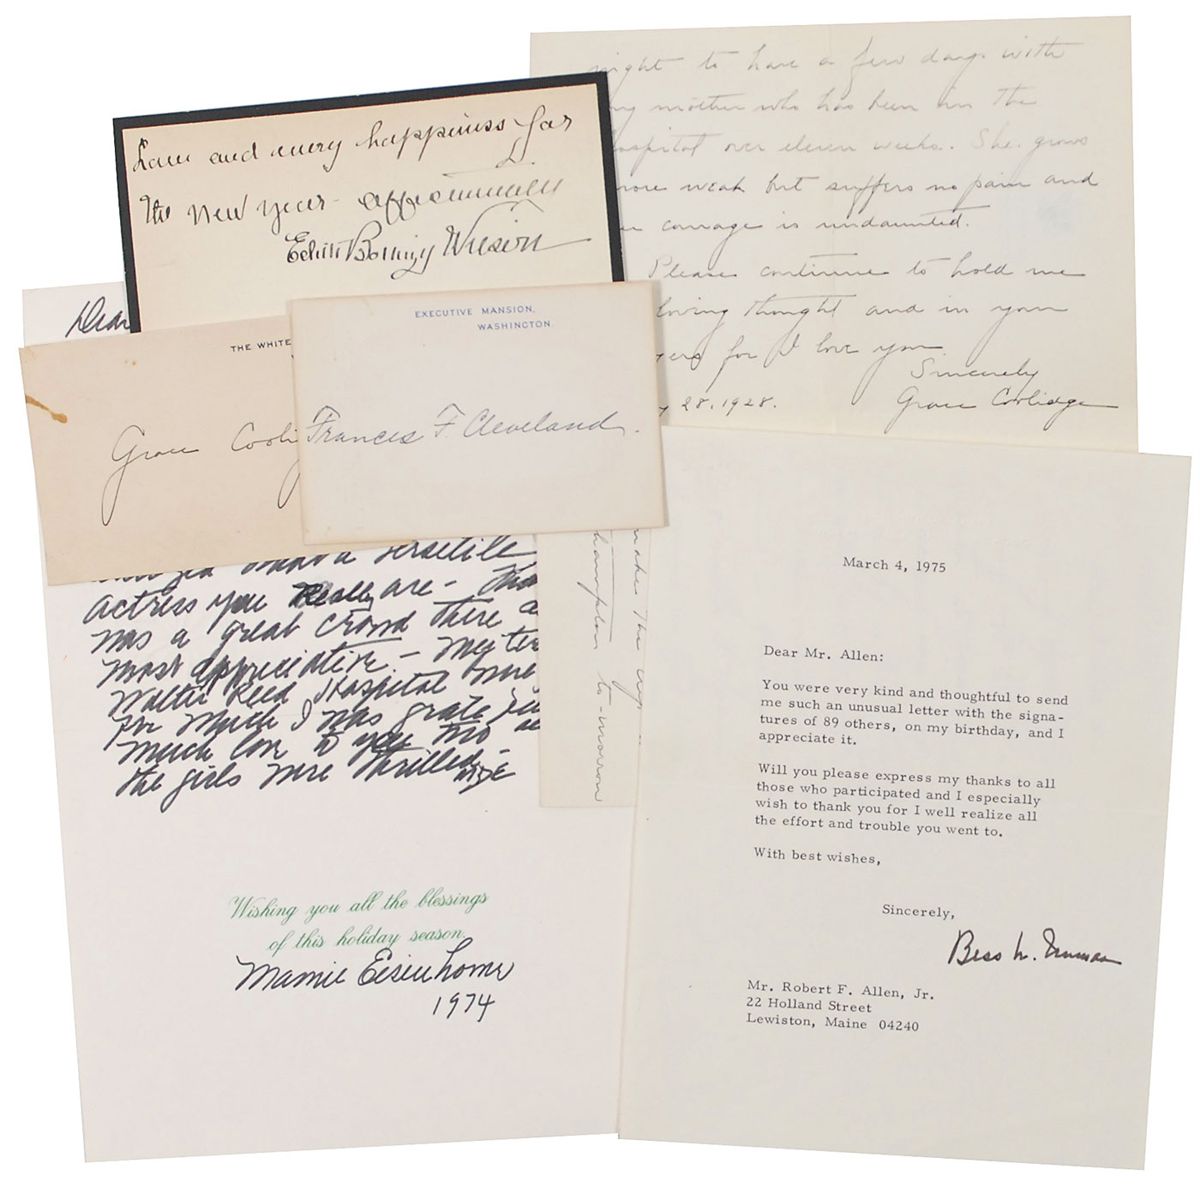 might to have a few days with
my mother who has been in the
hospital over eleven weeks. She grows
more weak but suffers no pain and
courage is undaunted.
Please continue to hold me
loving thought and in your
for I love you.
Sincerely
28, 1928.
Grace Coolidge
Love and every happiness for
the New Year - affectionately
Edith Bolling Wilson
Dear
THE WHITE
Grace Cooli
EXECUTIVE MANSION,
WASHINGTON.
Frances F. Cleveland.
what a versatile
actress you really are -
was a great crowd there
most appreciative. - my
Walter Reed Hospital
for which I was grate
much love to you two
the girls were thrilled -
MDE
Wishing you all the blessings
of this holiday season.
Mamie Eisenhower
1974
make the
hampton to-morrow
March 4, 1975
Dear Mr. Allen:
You were very kind and thoughtful to send
me such an unusual letter with the signa-
tures of 89 others, on my birthday, and I
appreciate it.
Will you please express my thanks to all
those who participated and I especially
wish to thank you for I well realize all
the effort and trouble you went to.
With best wishes,
Sincerely,
Bess W. Truman
Mr. Robert F. Allen, Jr.
22 Holland Street
Lewiston, Maine 04240